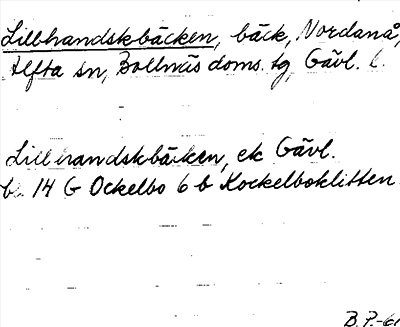 Lillhandskbäcken, bäck, Nordanå,
Alfta sn, Bollnäs doms. tg, Gävl. l.
Lillhandskbäcken, ek Gävl.
bl. 14 G Ockelbo 6 b Kockelboklitten
B.P.-60